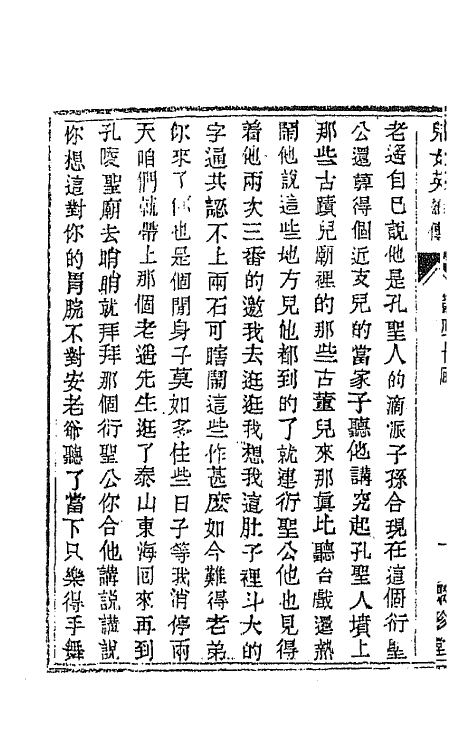 兒女英雄傳
一
聚珍堂
老遥自已說他是孔聖人的滴派子孫合現在這個衍聖
公還算得個近支兒的當家子聽他講究起孔聖人墳上
那些古蹟兒廟裡的那些古董兒來那眞比聽台戲還熱
鬧他說這些地方兒他都到的了就連衍聖公他也見得
着他兩次三番的邀我去逛逛我想我這肚子裡斗大的
字通共認不上兩石可瞎鬧這些作甚麽如今難得老弟
你來了你也是個閒身子莫如多住些日子等我消停兩
天咱們就帶上那個老遥先生逛了泰山東海回來再到
孔陵聖廟去哨哨就拜拜那個衍聖公你合他講說講說
你想這對你的胃脘不對安老爺聽了當下只樂得手舞